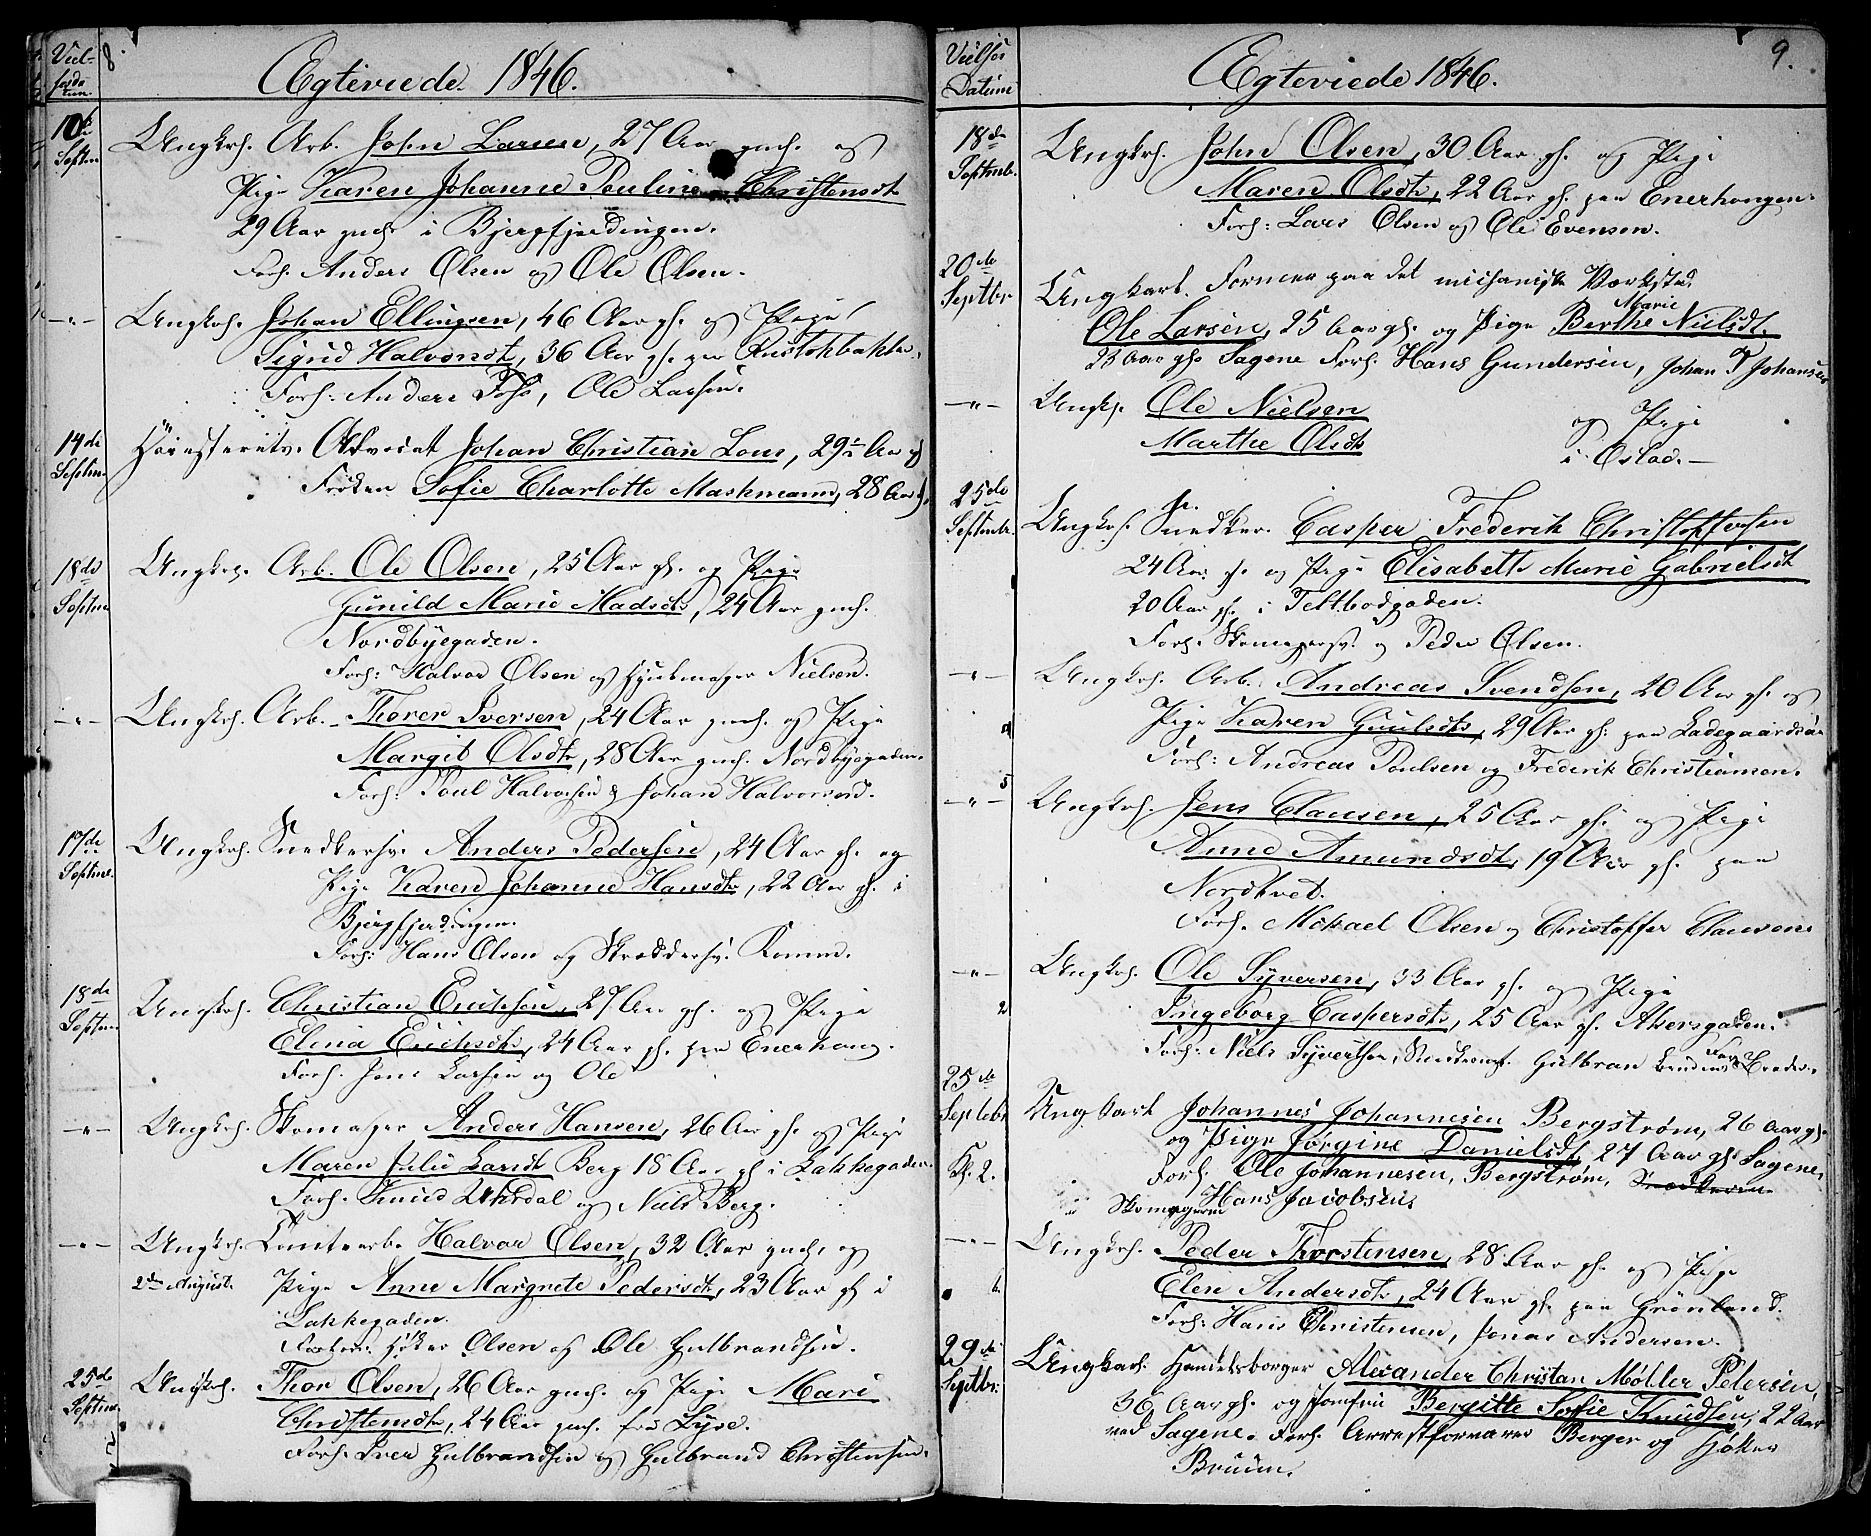 8.
Ægteviede 1846.
10de Septm. Ungkrh. Arb. John Larsen, 27 Aar gmh. og
Pige Karen Johanne Pauline Christensdt.
29 Aar gmh. i Bjergfjerdingen.
Forh. Anders Olsen og Ole Olsen.
-"- Ungkrh. Johan Ellingsen, 46 Aar gh. og Pige
Sigrid Halvorsdt, 36 Aar gh. paa
Forh: Anders Foss, Ole Larsen.
14de Septm. Høiesterets Advocat Johan Christian Lous, 29 Aar og
Frøken Sofie Charlotte Maschmann, 28 Aar
18de Septm. Ungkrh. Arb. Ole Olsen, 25 Aar gh. og Pige
Gunild Marie Madsdt., 24 Aar gmh.
Nordbyegaden.
Forh: Halvor Olsen og Hjulmager Nielsen.
-"- Ungkrh. Arb. Thorer Iversen, 24 Aar gmh. og Pige
Margit Olsdt., 28 Aar gmh. Nordbyegaden.
Forh: Poul Halvorsen & Johan Halvorsen.
17de Septm. Ungkrh. Snedkersv. Anders Pedersen, 24 Aar gh. og
Pige Karen Johanne Hansdt., 22 Aar gh. i
Bjergfjerdingen.
Forh: Hans Olsen og Skræddersv.
18de Septm. Ungkrh. Christian Erichsen, 27 Aar gh. og Pige
Elina Erichsdt., 24 Aar gh. paa Enerhaug.
Forh. Jens Larsen og Ole
-"- Ungkrh. Skomager Anders Hansen, 26 Aar gh. og Pige
Maren Julie Larsdt Berg 18 Aar gh i Lakkegaden.
Forh. Knud og Niels Berg.
-"- Ungkrh. Halvor Olsen, 32 Aar gmh. og
2den August. Pige Anne Margrete Pedersdt., 23 Aar gh i
Lakkegaden.
Høker Olsen og Ole Gulbrandsen.
25de Septm. Ungkrh. Thor Olsen, 26 Aar gmh. og Pige Mari
Christensdt., 24 Aar gmh. fra
Forh. Iver Gulbrandsen og Gulbrand Christensen.
9.
Vielses Datum
Ægteviede 1846.
18de Septemb. Ungkrh. John Olsen, 30 Aar gh. og Pige
Maren Olsdt., 22 Aar gh. paa Enerhaugen.
Forh: Lars Olsen og Ole Evensen.
20de Septbr Ungkarl. Former paa det mechaniske Værksted
Ole Larsen, 25 Aar gh. og Pige Berthe Marie Nielsdt.
23 Aar gh. Sagene Forh. Hans Gundersen, Johan P Johansen
-"- Ungk. Ole Nielsen og Pige
Marthe Olsdt i Oslo.
25de Septembr. Ungkrh. Snedker. Casper Frederik Christoffersen
24 Aar gh. og Pige Elisabeth Marie Gabrielsdt
20 Aar gh. i Toldbodgaden.
Forh. Skomagersv. og Peder Olsen.
-"- Ungkrh. Arb. Andreas Svendsen, 20 Aar gh. og
Pige Karen Guulsdt., 29 Aar gh. paa Ladegaardsøen
Forh: Andreas Poulsen og Frederik Christiansen.
-"- Ungkrh. Jens Clausen, 25 Aar gh. og Pige
Anne Amundsdt, 19 Aar gh. paa
Forh. Mikael Olsen og Christoffer Clausen.
-"- Ungkrh. Ole Syversen, 33 Aar gh. og Pige
Ingeborg Caspersdt., 25 Aar gh. Akersgaden.
Forh. Niels Syvertsen, Gulbran
25de Septebr Kl. 2. Ungkarl Johannes Johannesen Bergstrøm, 26 Aar gh.
og Pige Jørgine Danielsdt. 27 Aar gh. Sagene.
Forh. Ole Johannesen, Bergstrøm,
Skomager Hans Jacobsen,
-"- Ungkrh. Peder Thorstensen, 28 Aar gh. og Pige
Elen Andersdt., 24 Aar gh. paa Grønland.
Forh: Hans Christensen, Jonas Andersen.
29de Septbr. Ungkarl. Handelsborger Alexander Christian Møller Petersen,
36 Aar gh. og Jomfru Bergitte Sofie Knudsen, 22 Aar
ved Sagene. Forh. Arrestforvarer Berger og Høker
Bruun.